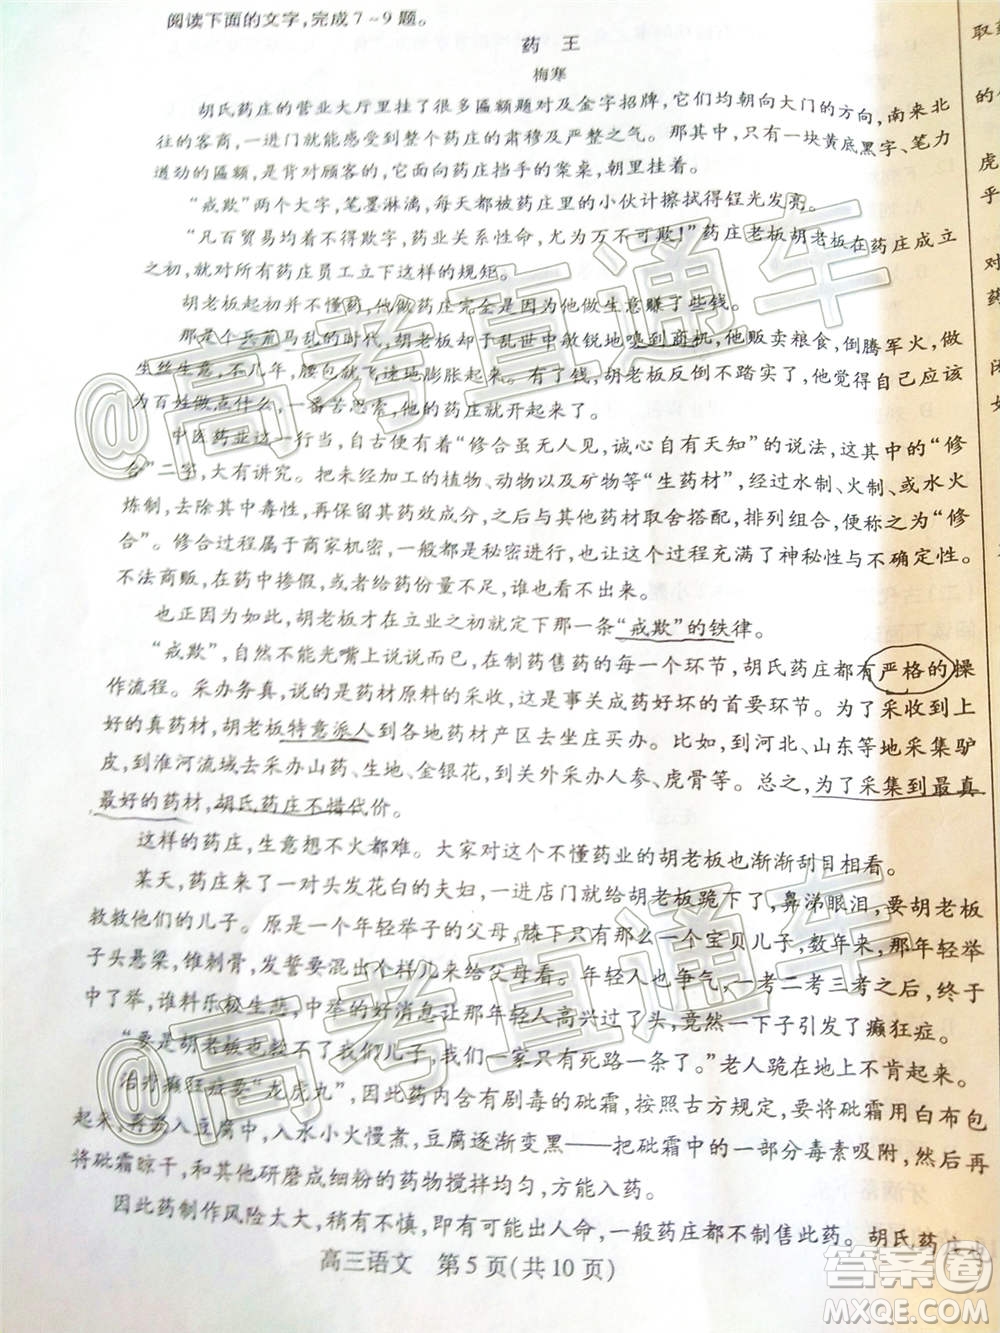 阅读下面的文字,完成7~9题。
药 王
梅寒
胡氏药庄的营业大厅里挂了很多匾额题对及金字招牌,它们均朝向大门的方向,南来北
往的客商,一进门就能感受到整个药庄的肃穆及严整之气。那其中,只有一块黄底黑字、笔力
遒劲的匾额,是背对顾客的,它面向药庄挡手的案桌,朝里挂着。
“戒欺”两个大字,笔墨淋漓,每天都被药庄里的小伙计擦拭得锃光发亮。
“凡百贸易均着不得欺字,药业关系性命,尤为万不可欺!”药庄老板胡老板在药庄成立
之初,就对所有药庄员工立下这样的规矩。
胡老板起初并不懂药,他做药庄完全是因为他做生意赚了些钱。
那是个兵荒马乱的时代,胡老板却于乱世中敏锐地嗅到商机,他贩卖粮食,倒腾军火,做
生丝生意,不几年,腰包就飞速地膨胀起来。有了钱,胡老板反倒不踏实了,他觉得自己应该
为百姓做点什么,一番苦思索,他的药庄就开起来了。
中医药业这一行当,自古便有着“修合虽无人见,诚心自有天知”的说法,这其中的“修
合”二字,大有讲究。把未经加工的植物、动物以及矿物等“生药材”,经过水制、火制、或水火
炼制,去除其中毒性,再获其药效成分,之后与其他药材取舍搭配,排列组合,便称之为“修
合”。修合过程属于商家机密,一般都是秘密进行,也让这个过程充满了神秘性与不确定性。
不法商贩,在药中掺假,或者给药份量不足,谁也看不出。
也正因为如此,胡老板才在立业之初就定下那一条“戒欺”的铁律。
“戒欺”,自然不能光嘴上说说而已,在制药售药的每一个环节,胡氏药庄都有严格的操
作流程。采办务真,说的是药材原料的采收,这是事关成药好坏的首要环节。为了采收到上
好的真药材,胡老板特意派人到各地药材产区去坐庄买办。比如,到河北、山东等地采集驴
皮,到淮河流域去采办山药、生地、金银花,到关外采办人参、虎骨等。总之,为了采集到最真
最好的药材,胡氏药庄不惜代价。
这样的药庄,生意想不火都难。大家对这个不懂药业的胡老板也渐渐刮目相看。
某天,药庄来了一对头发花白的夫妇,一进店门就给胡老板跪下了,鼻涕眼泪,要胡老板
救救他们的儿子。原是一个年轻举子的父母,膝下只有这么一个宝贝儿子,数年来,那年轻举
子头悬梁,锥刺骨,发誓要混出个样儿来给父母看。年轻人也争气,一考二考三考之后,终于
中了举,谁料乐极生悲,中举的好消息让那年轻人高兴过了头,竟然一下子引发了癫狂症。
“要是胡老板也救不了我们儿子,我们一家只有死路一条了。”老人跪在地上不肯起来。
治疗癫狂症要“龙虎丸”,因此药内含有剧毒的砒霜,按照古方规定,要将砒霜用白布包
起来,再裹入豆腐中,入水小火慢煮,豆腐逐渐变黑——把砒霜中的一部分毒素吸附,然后再
将砒霜晾干,和其他研磨成细粉的药物搅拌均匀,方能入药。
因此药制作风险太大,稍有不慎,即有可能出人命,一般药庄都不制售此药。胡氏药庄
高三语文 第5页(共10页)
@高考直通车
@高考直通车
答案圈
MXQE.COM